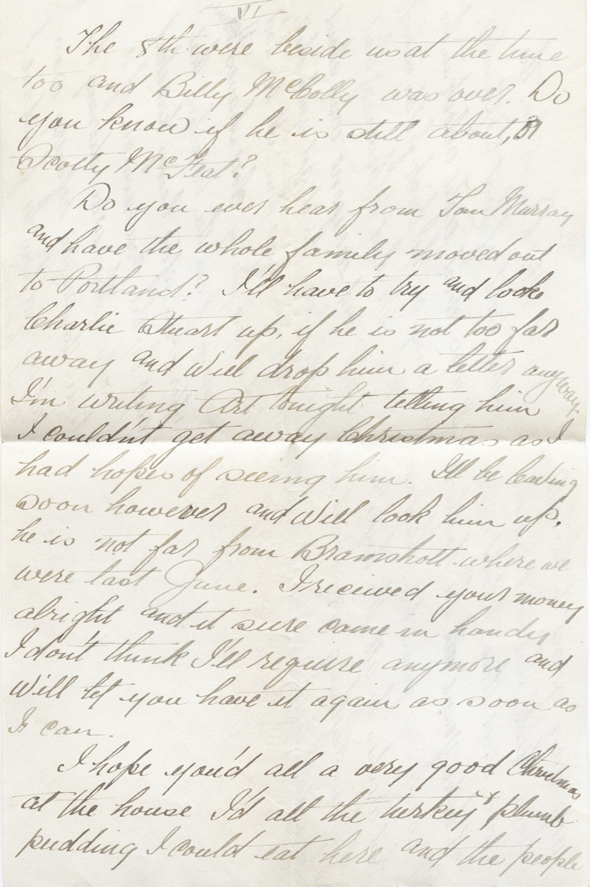 VI
The 8th were beside us at the time
too and Billy McColly was over. Do
you know if he is still about, or
Scotty McFeat?
Do you ever hear from Tom Murray
and have the whole family moved out
to Portland? I'll have to try and look
Charlie Stuart up, if he is not too far
away and will drop him a letter anyway.
I'm writing Art tonight telling him
I couldn't get away Christmas as I
had hopes of seeing him. I'll be leaving
soon however and will look him up.
he is not far from Bramshott where we
were last June. I received your money
alright and it sure came in handy
I don't think I'll require anymore and
will let you have it again as soon as
I can.
I hope you'd all a very good Christmas
at the house I'd all the turkey & plumb
pudding I could eat here and the people